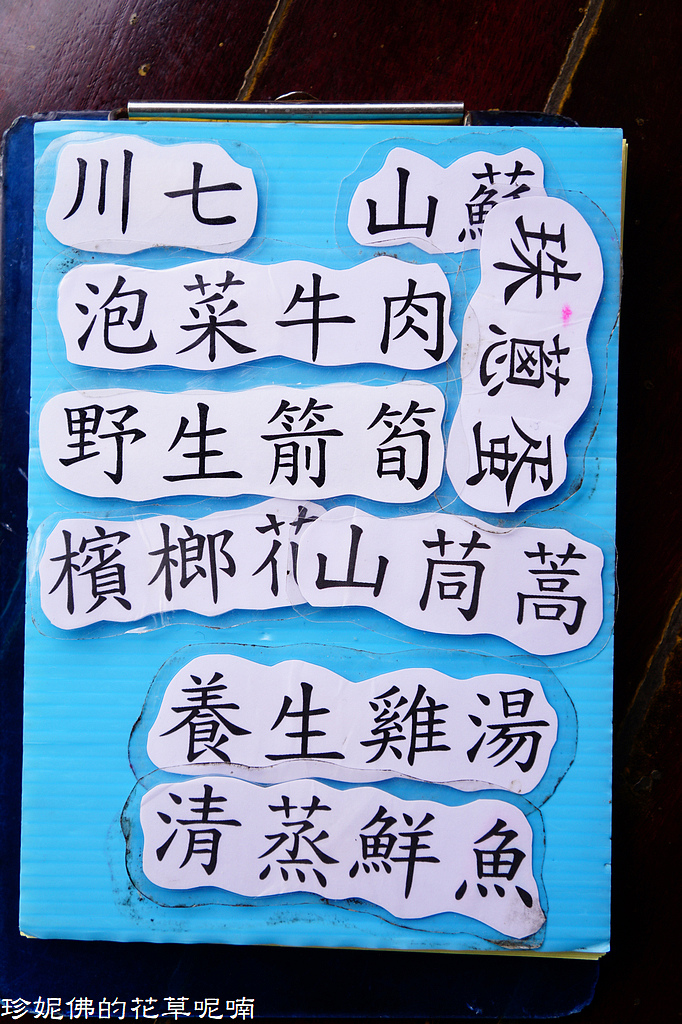 川七
山蘇
珠蔥蛋
泡菜牛肉
野生箭筍
檳榔花
山茼蒿
養生雞湯
清蒸鮮魚
珍妮佛的花草呢喃